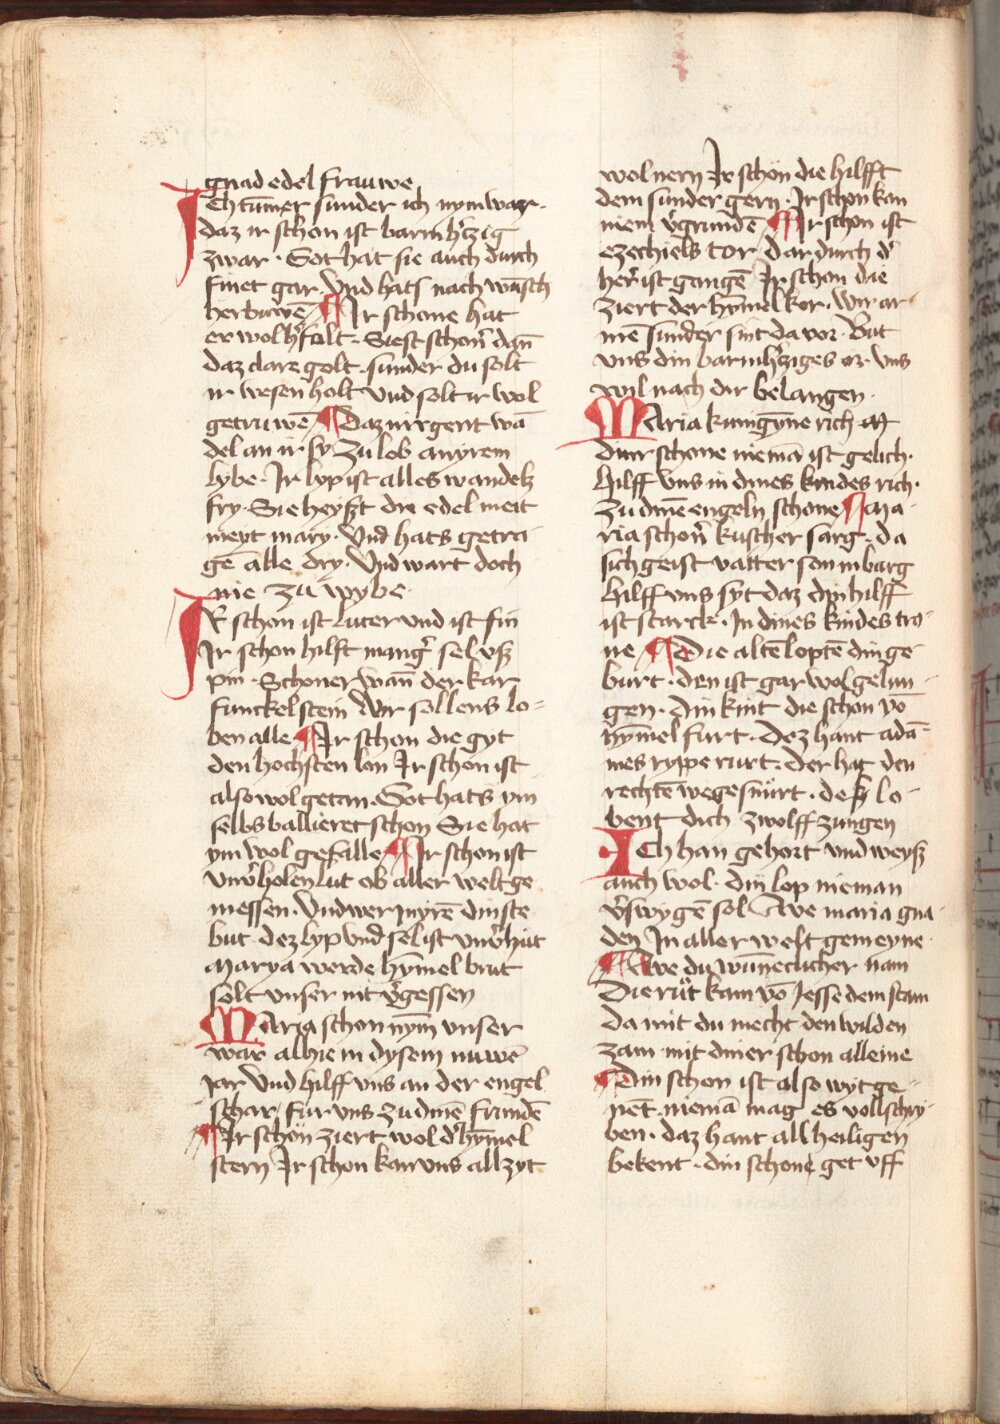 gnad edel frauwe
Ich tum̄er sunder ich nym war ·
daz ir schon ist barmh'zig
zwar · Got hat sie auch durch
finet gar · Vnd hats nach wūsch
herbuwē ¶ Ir schone hat
er wolh'falt · Siest schon' dañ
daz clare golt · sunder du solt
ir wesen holt Vnd solt ir wol
getruwē ¶ Daz nirgent wā
del an ir sy Zu lob an yrem
lybe · Ir lyp ist alles wandels
fry · Sie heyßt die edel meit
meyt mary · Vnd hats getra
gē alle dry · Vnd wart doch
nie zu wybe ·
IR schon ist luter vnd ist fin
Ir schon hilft mang' sel vß
pin · Schoner wañ der kar
funckelstein Wir sollens lo-
ben alle ¶ Ir schon die gyt
den hochsten lon Ir schon ist
also wol getan · Got hats ym
selbs ballieret schon Sie hat
ym wol gefalle ¶ Ir schon ist
vnv'holen lut ob aller welt ge
messen · Vnd wer in yrē dinste
but · dez lyp vnd sel ist vnv'hut
Marya werde hym̄el brut
solt vnser nit v'gessen
MAria schon nym̄ vnser
war alhie in dysem nuwē
jar Vnd hilff vns an der engel
schar / fur vns zu dinē frundē
¶ Ir schon ziert wol d' hym̄el
stern Ir schon kan vns allzyt
wol nern Ir schon die hilfft
dem sunder gern · Ir schon kan
niem v'grundē ¶ Ir schon ist
ezechiels tor / dar durch d'
her' ist gangē Ir schon die
ziert der hym̄el kor · Wir ar-
mē sunder sint da vor · But
vns din barmh'ziges or · vns
wil nach dir belangen ·
MAria kunigȳne rich an
diner schone niemā ist gelich ·
Hilff vns in dines kindes rich ·
zu dinē engeln schone ¶ Ma-
ria schon' kuscher sarg · da
sich geist vatter son in barg
Hilff vns syt daz din hilff
ist starck · In dines kindes tro-
ne ¶ Die altē loptē din ge-
burt · den ist gar wol gelun-
gen · din kint die schon vō
hym̄el furt · Dez hant adā-
mes rype rurt · der hat den
rechtē wege snůrt · deß lo-
bent dich zwolff zungen
ICh han gehort vnd weyß
auch wol · din lop nieman
v'swygē sol Ave maria gna-
den In aller welt gemeyne ·
¶ Ave du wun̄eclicher nam
Die růt kam vō Jesse dem stam
Da mit du mecht den wilden
zam mit diner schon alleine
¶ din schon ist also wyt ge-
nēt · niemā mag es vollschry-
ben · daz hant all heiligen
bekent · din schone get vff